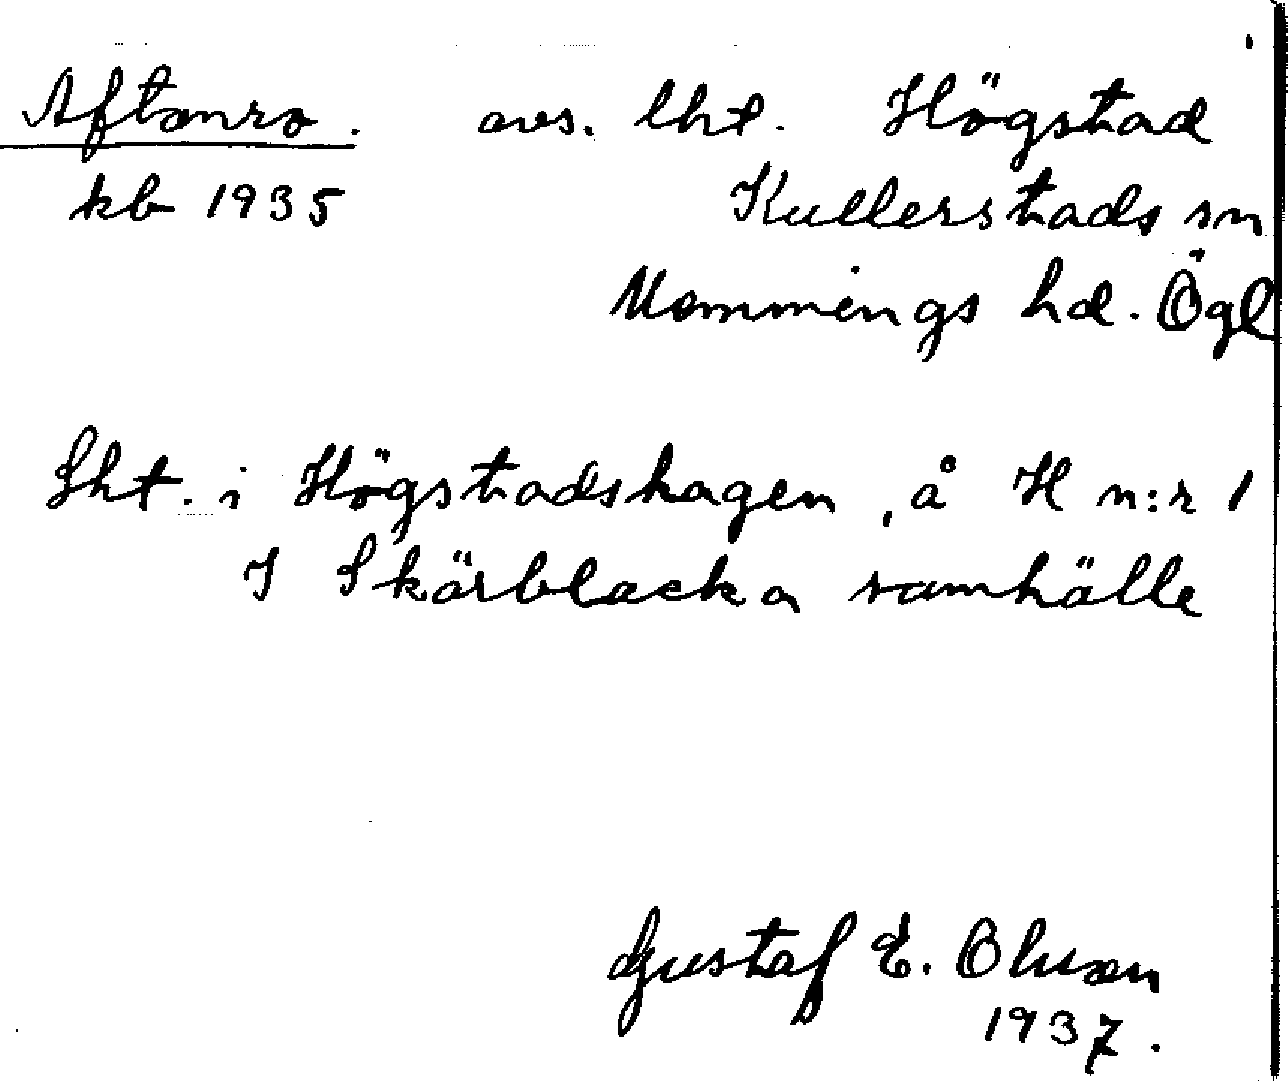 Aftonro. avs. lht. Högstad
kb 1935 Kullerstads sn
Memmings hd. Ögl
Lht. i Högstadshagen, å H n:r 1
I Skärblacka samhälle
Gustaf E. Olsson
1937.